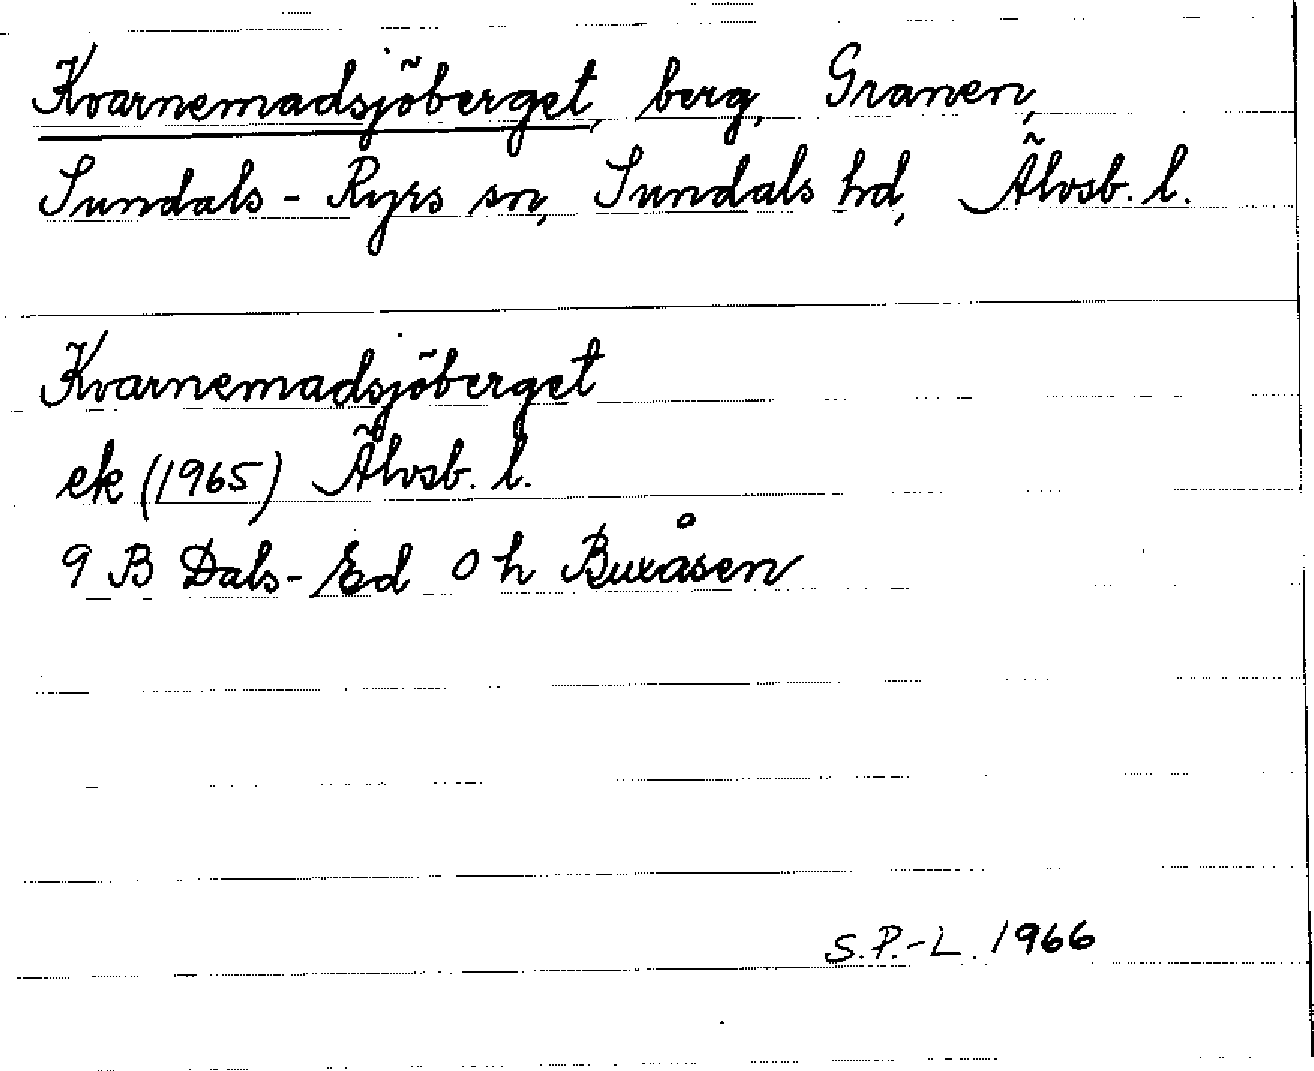 Kvarnemadsjöberget, berg, Granen,
Sundals-Ryrs sn, Sundals hd, Älvsb. l.
Kvarnemadsjöberget
ek (1965) Älvsb. l.
9 B Dals-Ed 0 h Buxåsen
S.P.-L. 1966